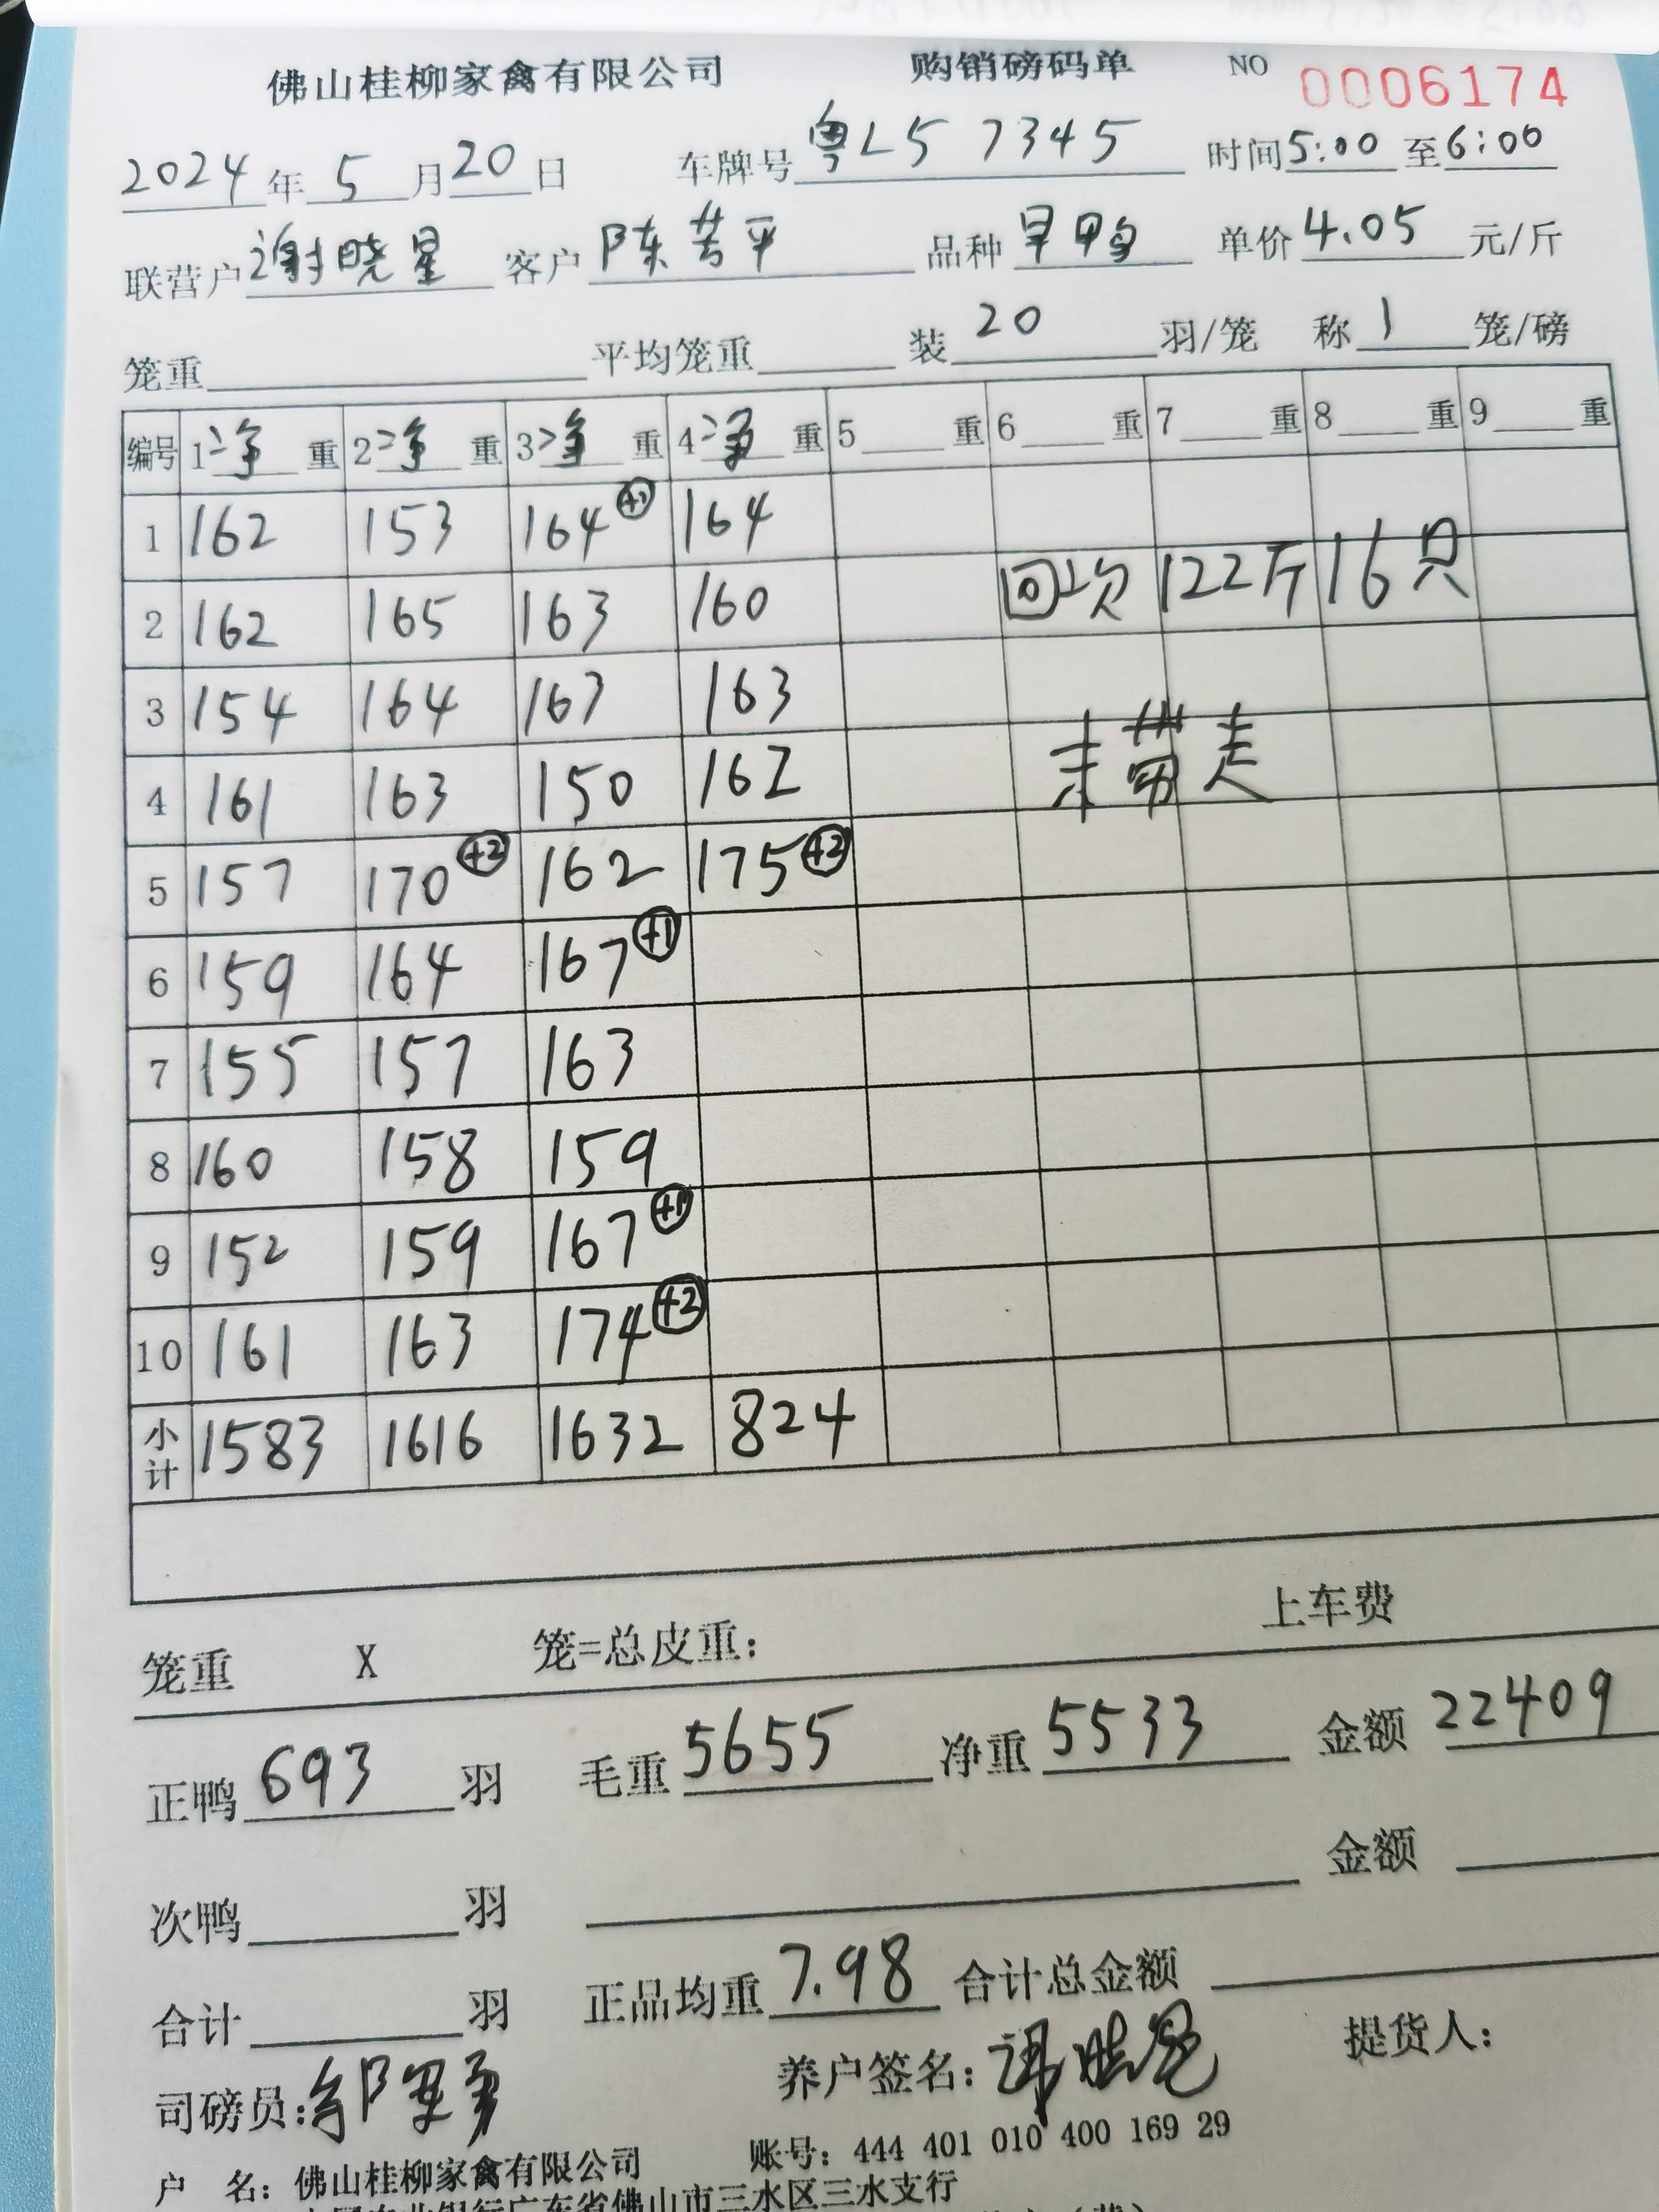 佛山桂柳家禽有限公司 购销磅码单 NO 0006174
2024年5月20日 车牌号粤L57345 时间5:00至6:00
联营户谢晓星 客户陈芳平 品种旱鸭 单价4.05元/斤
笼重 平均笼重 装20羽/笼 称1笼/磅
编号 1净重 2净重 3净重 4净重 5重 6重 7重 8重 9重
1 162 153 164+1 164
2 162 165 163 160 回次 122斤 16只
3 154 164 163 163
4 161 163 150 162 未带走
5 157 170+2 162 175+2
6 159 164 167+1
7 155 157 163
8 160 158 159
9 152 159 167+1
10 161 163 174+2
小计 1583 1616 1632 824
笼重 X 笼=总皮重: 上车费
正鸭693羽 毛重5655 净重5533 金额22409
次鸭 羽 金额
合计 羽 正品均重7.98 合计总金额
司磅员: 养户签名:谢晓星 提货人:
户 名: 佛山桂柳家禽有限公司 账号: 444 401 010 400 169 29
银行广东省佛山市三水区三水支行